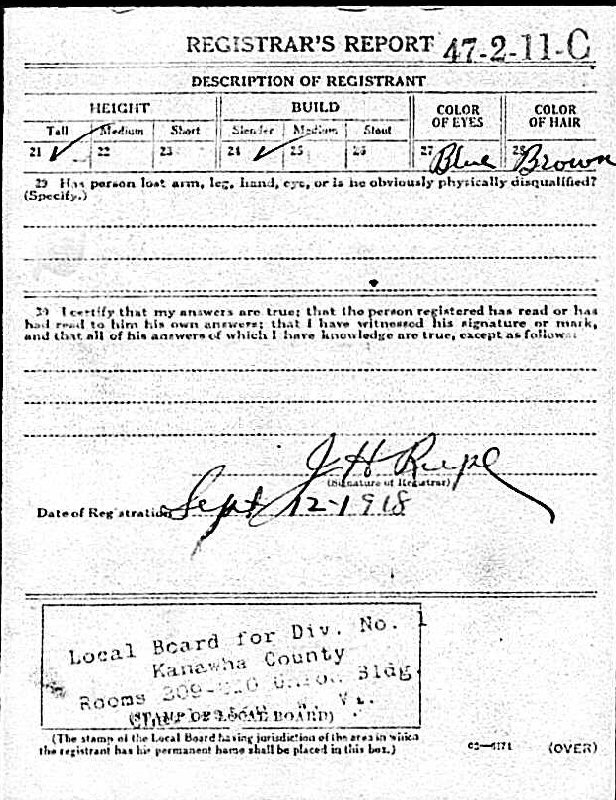 REGISTRAR'S REPORT 47-2-11-C
DESCRIPTION OF REGISTRANT
HEIGHT BUILD COLOR OF EYES COLOR OF HAIR
Tall Medium Short Slender Medium Stout
21 ✓ 22 23 24 ✓ 25 26 27 Blue 28 Brown
29 Has person lost arm, leg, hand, eye, or is he obviously physically disqualified?
(Specify.)
30 I certify that my answers are true; that the person registered has read or has
had read to him his own answers; that I have witnessed his signature or mark,
and that all of his answers of which I have knowledge are true, except as follows:
J H
(Signature of Registrar)
Date of Registration Sept 12-1918
Local Board for Div. No. 1
Kanawha County
Rooms Bldg.
(STAMP OF LOCAL BOARD)
(The stamp of the Local Board having jurisdiction of the area in which
the registrant has his permanent home shall be placed in this box.)
(OVER)